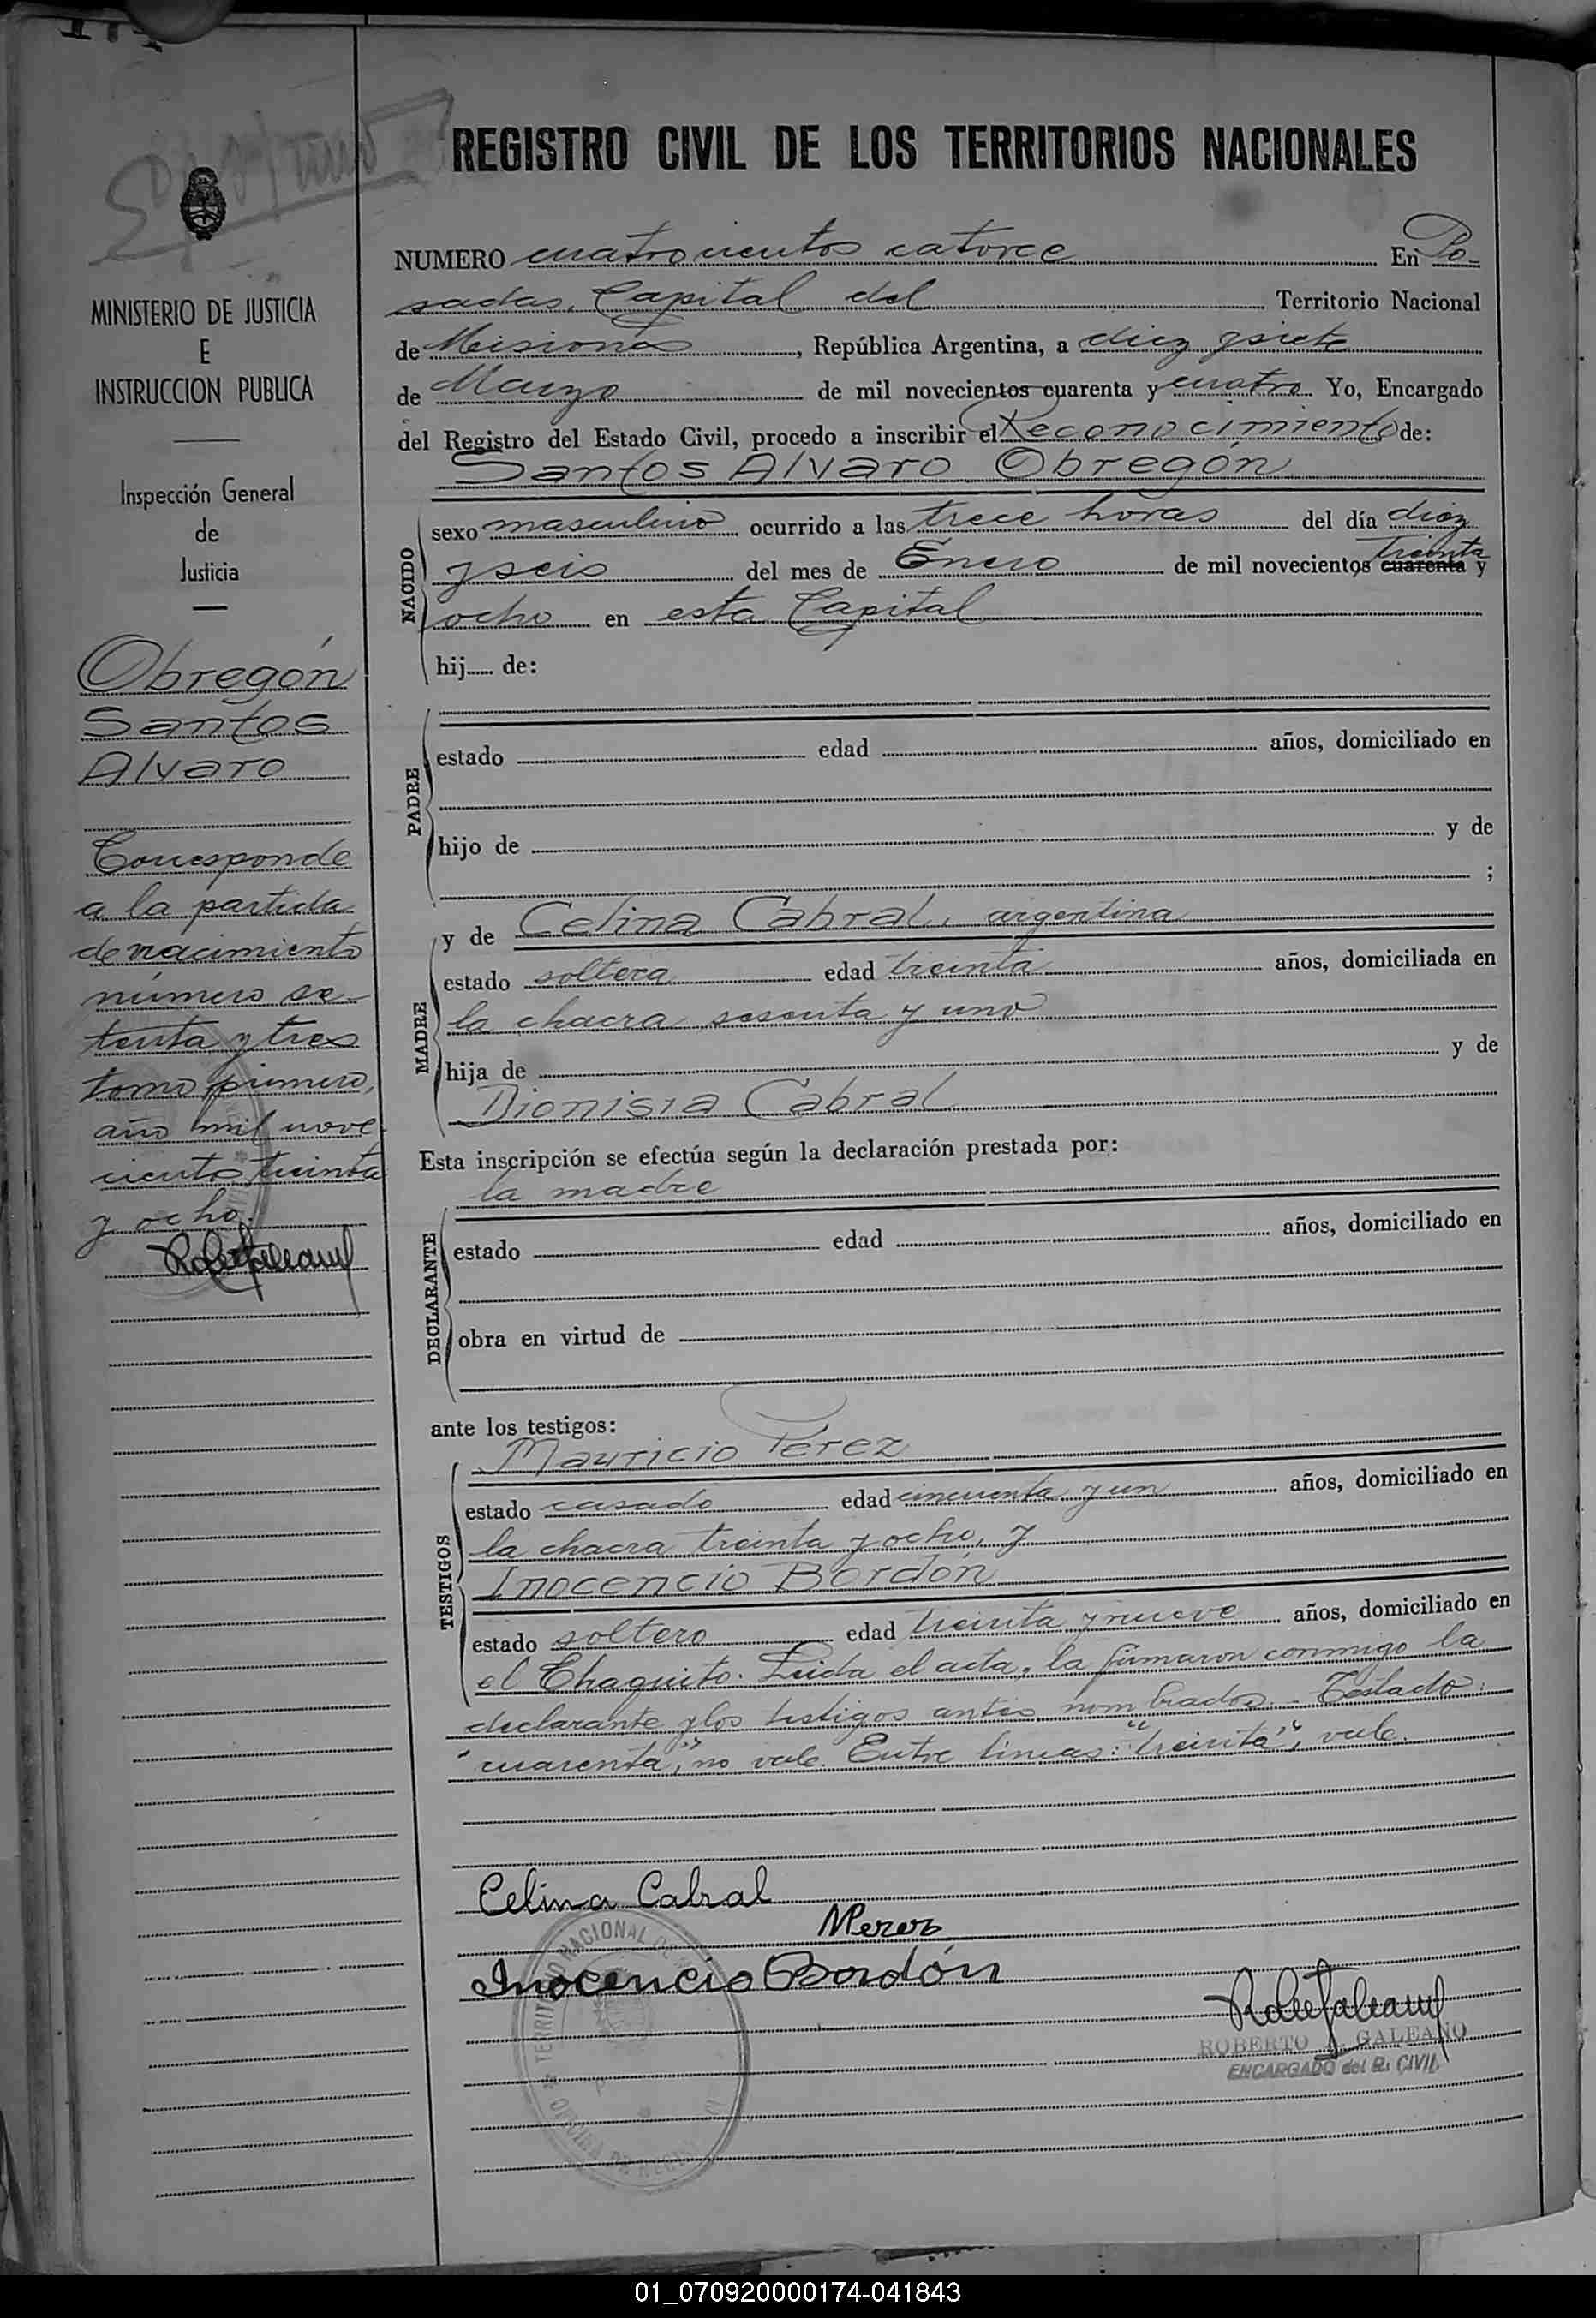 174
REGISTRO CIVIL DE LOS TERRITORIOS NACIONALES
MINISTERIO DE JUSTICIA
E
INSTRUCCION PUBLICA
Inspección General
de
Justicia
Obregón
Santos
Alvaro
Corresponde
a la partida
de nacimiento
número se-
tenta y tres
tomo primero,
año mil nove
cientos treinta
y ocho.
NUMERO cuatrocientos catorce En Po-
sadas, Capital del Territorio Nacional
de Misiones, República Argentina, a diez y siete
de Marzo de mil novecientos cuarenta y cuatro Yo, Encargado
del Registro del Estado Civil, procedo a inscribir el Reconocimiento de:
Santos Alvaro Obregón
NACIDO
sexo masculino ocurrido a las trece horas del día diez
treinta
y seis del mes de Enero de mil novecientos cuarenta y
ocho en esta Capital
hij...... de:
PADRE
estado edad años, domiciliado en
hijo de y de
;
MADRE
y de Celina Cabral, argentina
estado soltera edad treinta años, domiciliada en
la chacra sesenta y uno
hija de y de
Dionisia Cabral
Esta inscripción se efectúa según la declaración prestada por:
la madre
DECLARANTE
estado edad años, domiciliado en
obra en virtud de
ante los testigos:
TESTIGOS
Mauricio Pérez
estado casado edad cincuenta y un años, domiciliado en
la chacra treinta y ocho, y
Inocencio Bordón
estado soltero edad treinta y nueve años, domiciliado en
el Chaquito. Leida el acta, la firmaron conmigo la
declarante y los testigos antes nombrados. - Testado:
"cuarenta", no vale. Entre lineas: "treinta", vale.
Celina Cabral
MPerez
Inocencio Bordón
TERRITORIO NACIONAL DE
ROBERTO GALEANO
ENCARGADO del R. CIVIL
01_070920000174-041843